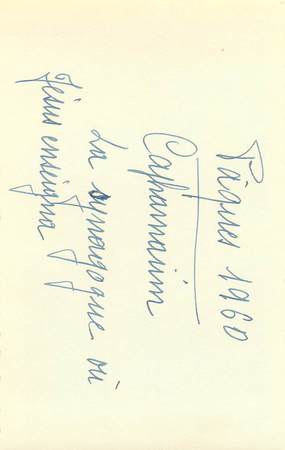 Pâques 1960
Capharnaüm
La synagogue où
Jésus enseigna